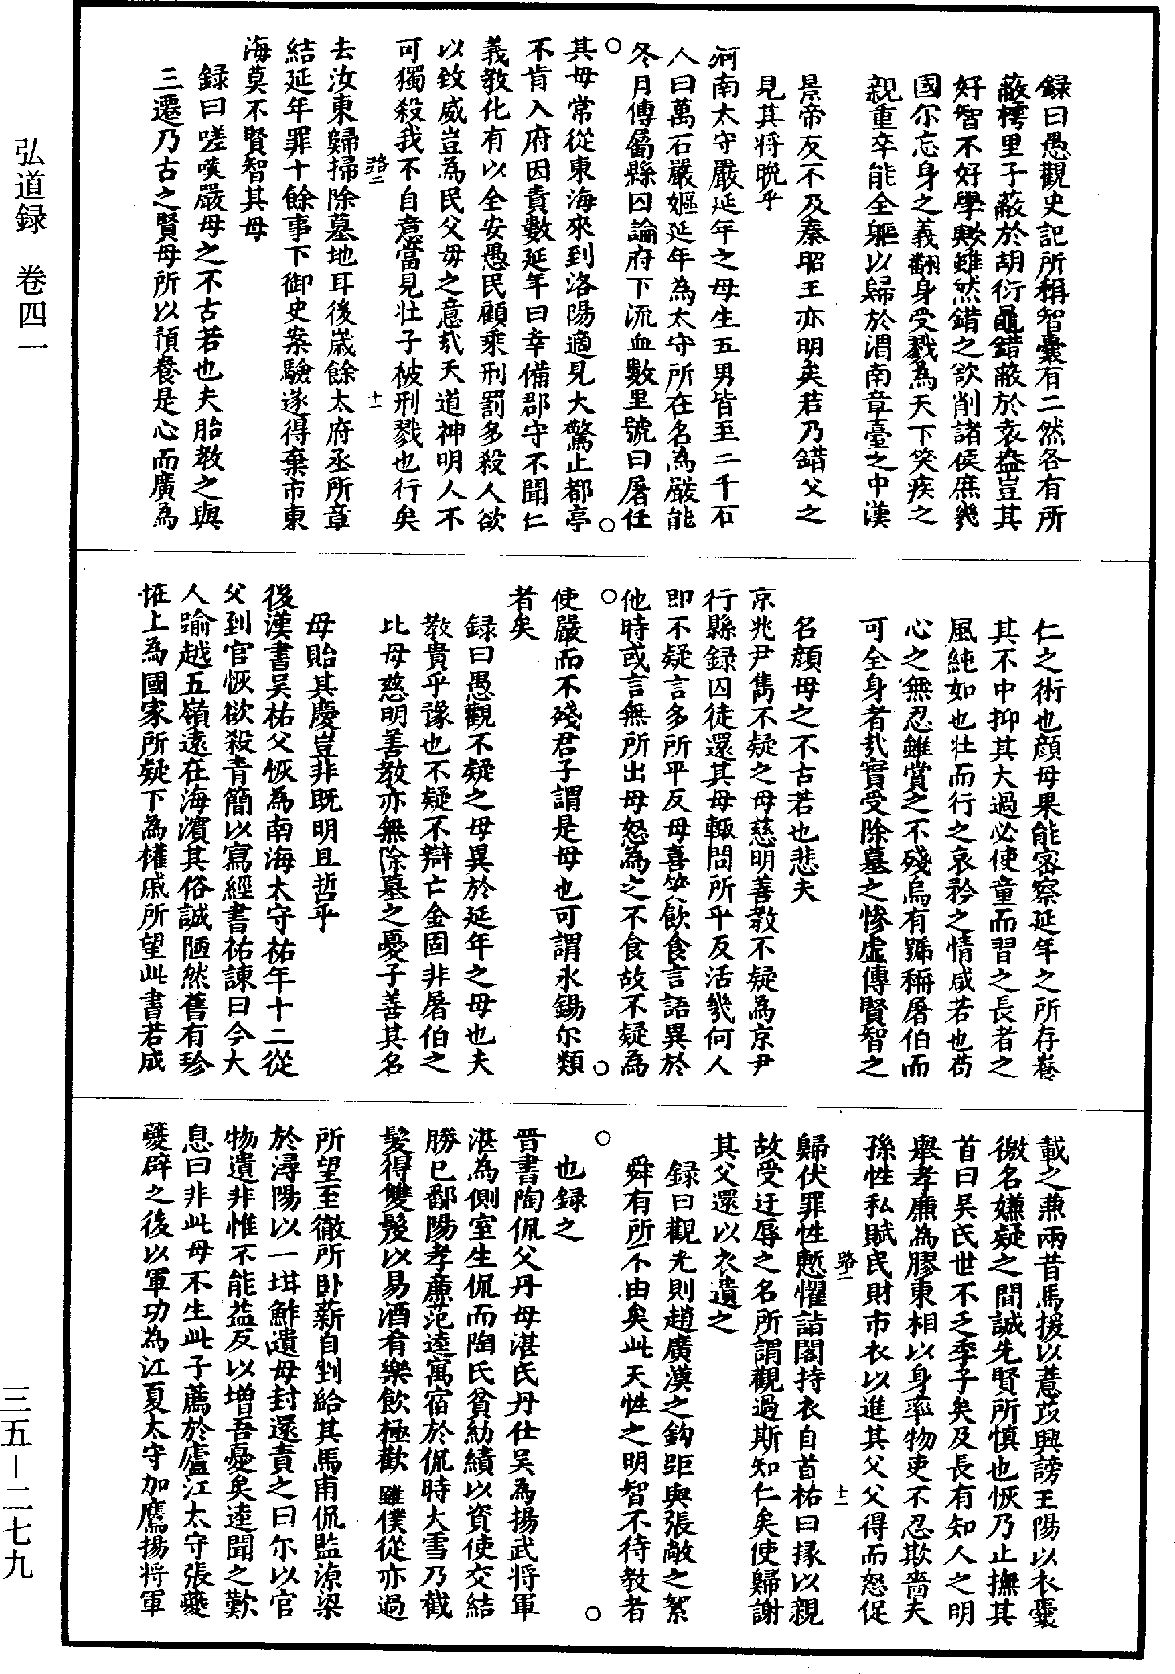 弘道録　卷四一
三五－二七九
録曰愚觀史記所稱智囊有二然各有所
蔽樗里子蔽於胡衍鼂錯蔽於袁盎豈其
好智不好學歟雖然錯之欲削諸侯庶幾
國尔忘身之義翻身受戮為天下笑疾之
親重卒能全軀以歸於渭南章臺之中漢
景帝反不及秦昭王亦明矣若乃錯父之
見其將晚乎
河南太守嚴延年之母生五男皆至二千石
人曰萬石嚴嫗延年為太守所在名為嚴能
冬月傳屬縣囚論府下流血數里號曰屠伯
其母常從東海來到洛陽適見大驚止都亭
不肯入府因責數延年曰幸備郡守不聞仁
義教化有以全安愚民顧乘刑罰多殺人欲
以致威豈為民父母之意哉天道神明人不
可獨殺我不自意當見壯子被刑戮也行矣
路一　十一
去汝東歸掃除墓地耳後歲餘太府丞所章
結延年罪十餘事下御史案驗遂得棄市東
海莫不賢智其母
録曰嗟嗟嚴母之不古若也夫胎教之與
三遷乃古之賢母所以預養是心而廣為
仁之術也顔母果能密察延年之所存養
其不中抑其大過必使童而習之長者之
風純如也壯而行之哀矜之情咸若也苟
心之無忍雖賞之不殘烏有號稱屠伯而
可全身者哉實受除墓之慘虛傳賢智之
名顔母之不古若也悲夫
京兆尹雋不疑之母慈明善教不疑為京尹
行縣録囚徒還其母輒問所平反活幾何人
即不疑言多所平反母喜笑飲食言語異於
他時或言無所出母怒為之不食故不疑為
使嚴而不殘君子謂是母也可謂永錫尔類
者矣
録曰愚觀不疑之母異於延年之母也夫
教貴乎豫也不疑不辯亡金固非屠伯之
比母慈明善教亦無除墓之憂子善其名
母貽其慶豈非既明且哲乎
後漢書吳祐父恢為南海太守祐年十二從
父到官恢欲殺青簡以寫經書祐諫曰今大
人踰越五嶺遠在海濱其俗誠陋然舊有珍
恠上為國家所疑下為權戚所望此書若成
載之兼兩昔馬援以薏苡興謗王陽以衣囊
徼名嫌疑之間誠先賢所慎也恢乃止撫其
首曰吳氏世不乏季子矣及長有知人之明
舉孝廉為膠東相以身率物吏不忍欺嗇夫
孫性私賦民財市衣以進其父父得而怒促
路一　十二
歸伏罪性慙懼詣閣持衣自首祐曰掾以親
故受迂辱之名所謂觀過斯知仁矣使歸謝
其父還以衣遺之
録曰觀光則趙廣漢之鈎距與張敞之絮
舜有所不由矣此天性之明智不待教者
也録之
晉書陶侃父丹母湛氏丹仕吳為揚武將軍
湛為側室生侃而陶氏貧紡績以資使交結
勝已鄱陽孝廉范逵寓宿於侃時大雪乃截
髮得雙髲以易酒肴樂飲極歡雖僕從亦過
所望至徹所卧薪自剉給其馬甫侃監源梁
於潯陽以一坩鮓遺母封還責之曰尔以官
物遺非惟不能益反以增吾憂矣逵聞之歎
息曰非此母不生此子薦於廬江太守張夔
夔辟之後以軍功為江夏太守加鷹揚將軍